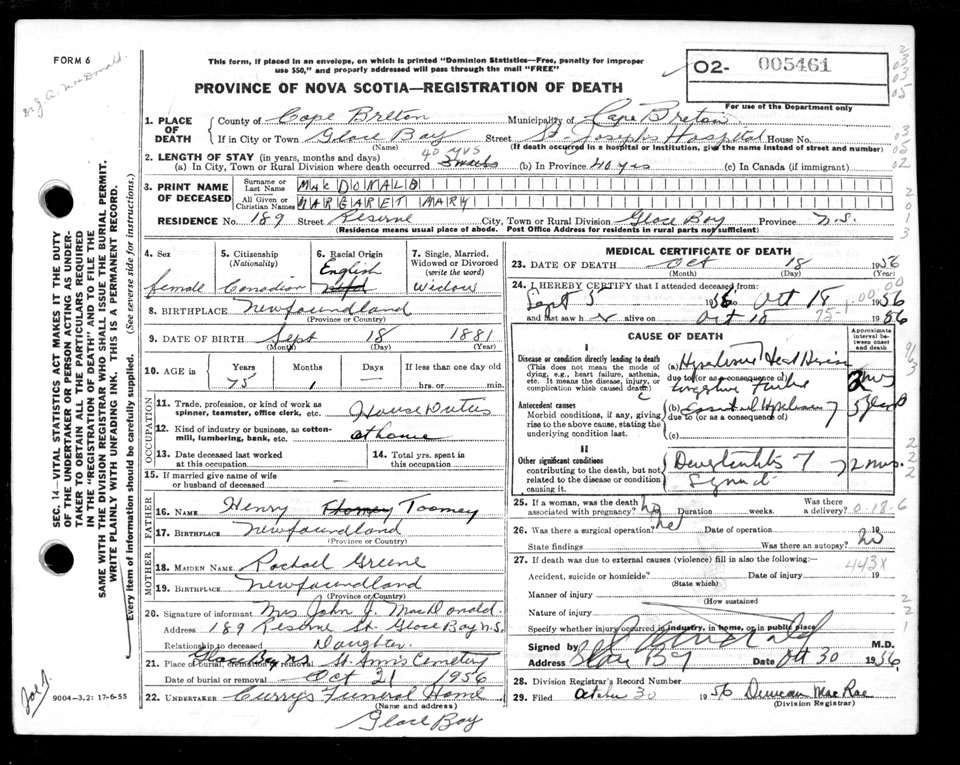 FORM 6
Dr J. A. MacDonald.
This form, if placed in an envelope, on which is printed "Dominion Statistics—Free, penalty for improper
use $50," and properly addressed will pass through the mail "FREE"
PROVINCE OF NOVA SCOTIA—REGISTRATION OF DEATH
02- 005461
For use of the Department only.
1. PLACE OF DEATH
County of Cape Breton Municipality of Cape Breton
If in City or Town Glace Bay Street St. Joseph's Hospital House No.
(Name) (If death occurred in a hospital or institution, give the name instead of street and number)
2. LENGTH OF STAY (in years, months and days)
(a) In City, Town or Rural Division where death occurred 40 yrs (b) In Province 40 yrs (c) In Canada (if immigrant)
3. PRINT NAME OF DECEASED
Surname or Last Name MacDONALD
All Given or Christian Names MARGARET MARY
RESIDENCE No. 189 Street Reserve City, Town or Rural Division Glace Bay Province N.S.
(Residence means usual place of abode. Post Office Address for residents in rural parts not sufficient)
4. Sex female
5. Citizenship (Nationality) Canadian
6. Racial Origin English Nfld
7. Single, Married, Widowed or Divorced (write the word) Widow
8. BIRTHPLACE Newfoundland
(Province or Country)
9. DATE OF BIRTH Sept 18 1881
(Month) (Day) (Year)
10. AGE in Years 75 Months 1 Days — If less than one day old hrs. or min.
OCCUPATION
11. Trade, profession, or kind of work as spinner, teamster, office clerk, etc. House Duties
12. Kind of industry or business, as cotton-mill, lumbering, bank, etc. at home
13. Date deceased last worked at this occupation
14. Total yrs. spent in this occupation
15. If married give name of wife or husband of deceased –
FATHER
16. NAME Henry Toomey
17. BIRTHPLACE Newfoundland
(Province or Country)
MOTHER
18. MAIDEN NAME Rachael Greene
19. BIRTHPLACE Newfoundland
(Province or Country)
20. Signature of informant Mrs John J. MacDonald.
Address 189 Reserve St. Glace Bay N.S.
Relationship to deceased Daughter.
21. Place of burial, cremation or removal Glace Bay NS St. Ann's Cemetery
Date of burial or removal Oct 21 1956
22. UNDERTAKER Curry's Funeral Home
(Name and address)
Glace Bay
MEDICAL CERTIFICATE OF DEATH
23. DATE OF DEATH Oct 18 1956
(Month) (Day) (Year)
24. I HEREBY CERTIFY that I attended deceased from:
Sept 5 1956 to Oct 18 1956
and last saw her alive on Oct 18 1956
CAUSE OF DEATH
Approximate interval between onset and death
I
Disease or condition directly leading to death
(This does not mean the mode of dying, e.g., heart failure, asthenia, etc. It means the disease, injury, or complication which caused death)
(a)
due to (or as a consequence of)
Antecedent causes
Morbid conditions, if any, giving rise to the above cause, stating the underlying condition last.
(b)
due to (or as a consequence of)
(c)
II
Other significant conditions
contributing to the death, but not related to the disease or condition causing it.
Diverticulitis of Sigmoid
2 mos.
25. If a woman, was the death associated with pregnancy? no Duration weeks. Was there a delivery?
26. Was there a surgical operation? no Date of operation 19
State findings Was there an autopsy? no
27. If death was due to external causes (violence) fill in also the following:—
443X
Accident, suicide or homicide? Date of injury 19
(State which)
Manner of injury
(How sustained
Nature of injury
Specify whether injury occurred in industry, in home, or in public place
Signed by M.D.
Address Glace Bay Date Oct 30 1956
28. Division Registrar's Record Number
29. Filed October 30 1956 Duncan MacRae
(Division Registrar)
SEC. 14—VITAL STATISTICS ACT MAKES IT THE DUTY
OF THE UNDERTAKER OR PERSON ACTING AS UNDER-
TAKER TO OBTAIN ALL THE PARTICULARS REQUIRED
IN THE "REGISTRATION OF DEATH" AND TO FILE THE
SAME WITH THE DIVISION REGISTRAR WHO SHALL ISSUE THE BURIAL PERMIT.
WRITE PLAINLY WITH UNFADING INK. THIS IS A PERMANENT RECORD.
Every item of information should be carefully supplied. (See reverse side for instructions.)
9004-3.2: 17-6-55